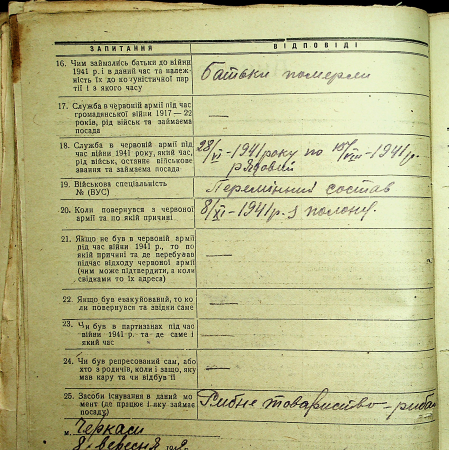 ЗАПИТАННЯ ВІДПОВІДІ
16. Чим займались батьки до війни
1941 р. і в даний час та належ-
ність їх до комуністичної пар-
тії і з якого часу
Батьки померли
17. Служба в червоній армії під час
громадянської війни 1917—22
років, рід військ та займаєма
посада
—
18. Служба в червоній армії під
час війни 1941 року, який час,
рід військ, останнє військове
звання та займаєма посада
28/VI-1941 року по /VIII-1941 р.
рядовий
19. Військова спеціальність
№ (ВУС)
Перемінний состав
20. Коли повернувся з червоної
армії та по якій причині
8/XI-1941 р. з полону.
21. Якщо не був в червоній армії
під час війни 1941 р., то по
якій причині та де перебував
підчас відходу червоної армії
(чим може підтвердити, а коли
свідками то їх адреса)
—
22. Якщо був евакуйований, то ко
ли повернувся та звідки саме
—
23. Чи був в партизанах під час
війни 1941 р. та де саме і
який час
—
24. Чи був репресований сам, або
хто з родичів, коли і защо, яку
мав кару та чи відбув її
—
25. Засоби існування в даний мо-
мент (де працює і яку займає
посаду)
Рибне товариство - рибак
м. Черкаси
8 вересня